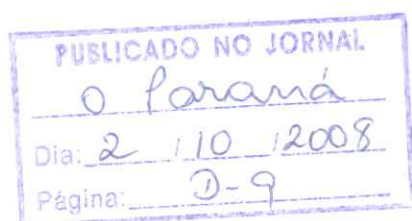 PUBLICADO NO JORNAL
O Paraná
Dia: 2 / 10 / 2008
Página: D-9